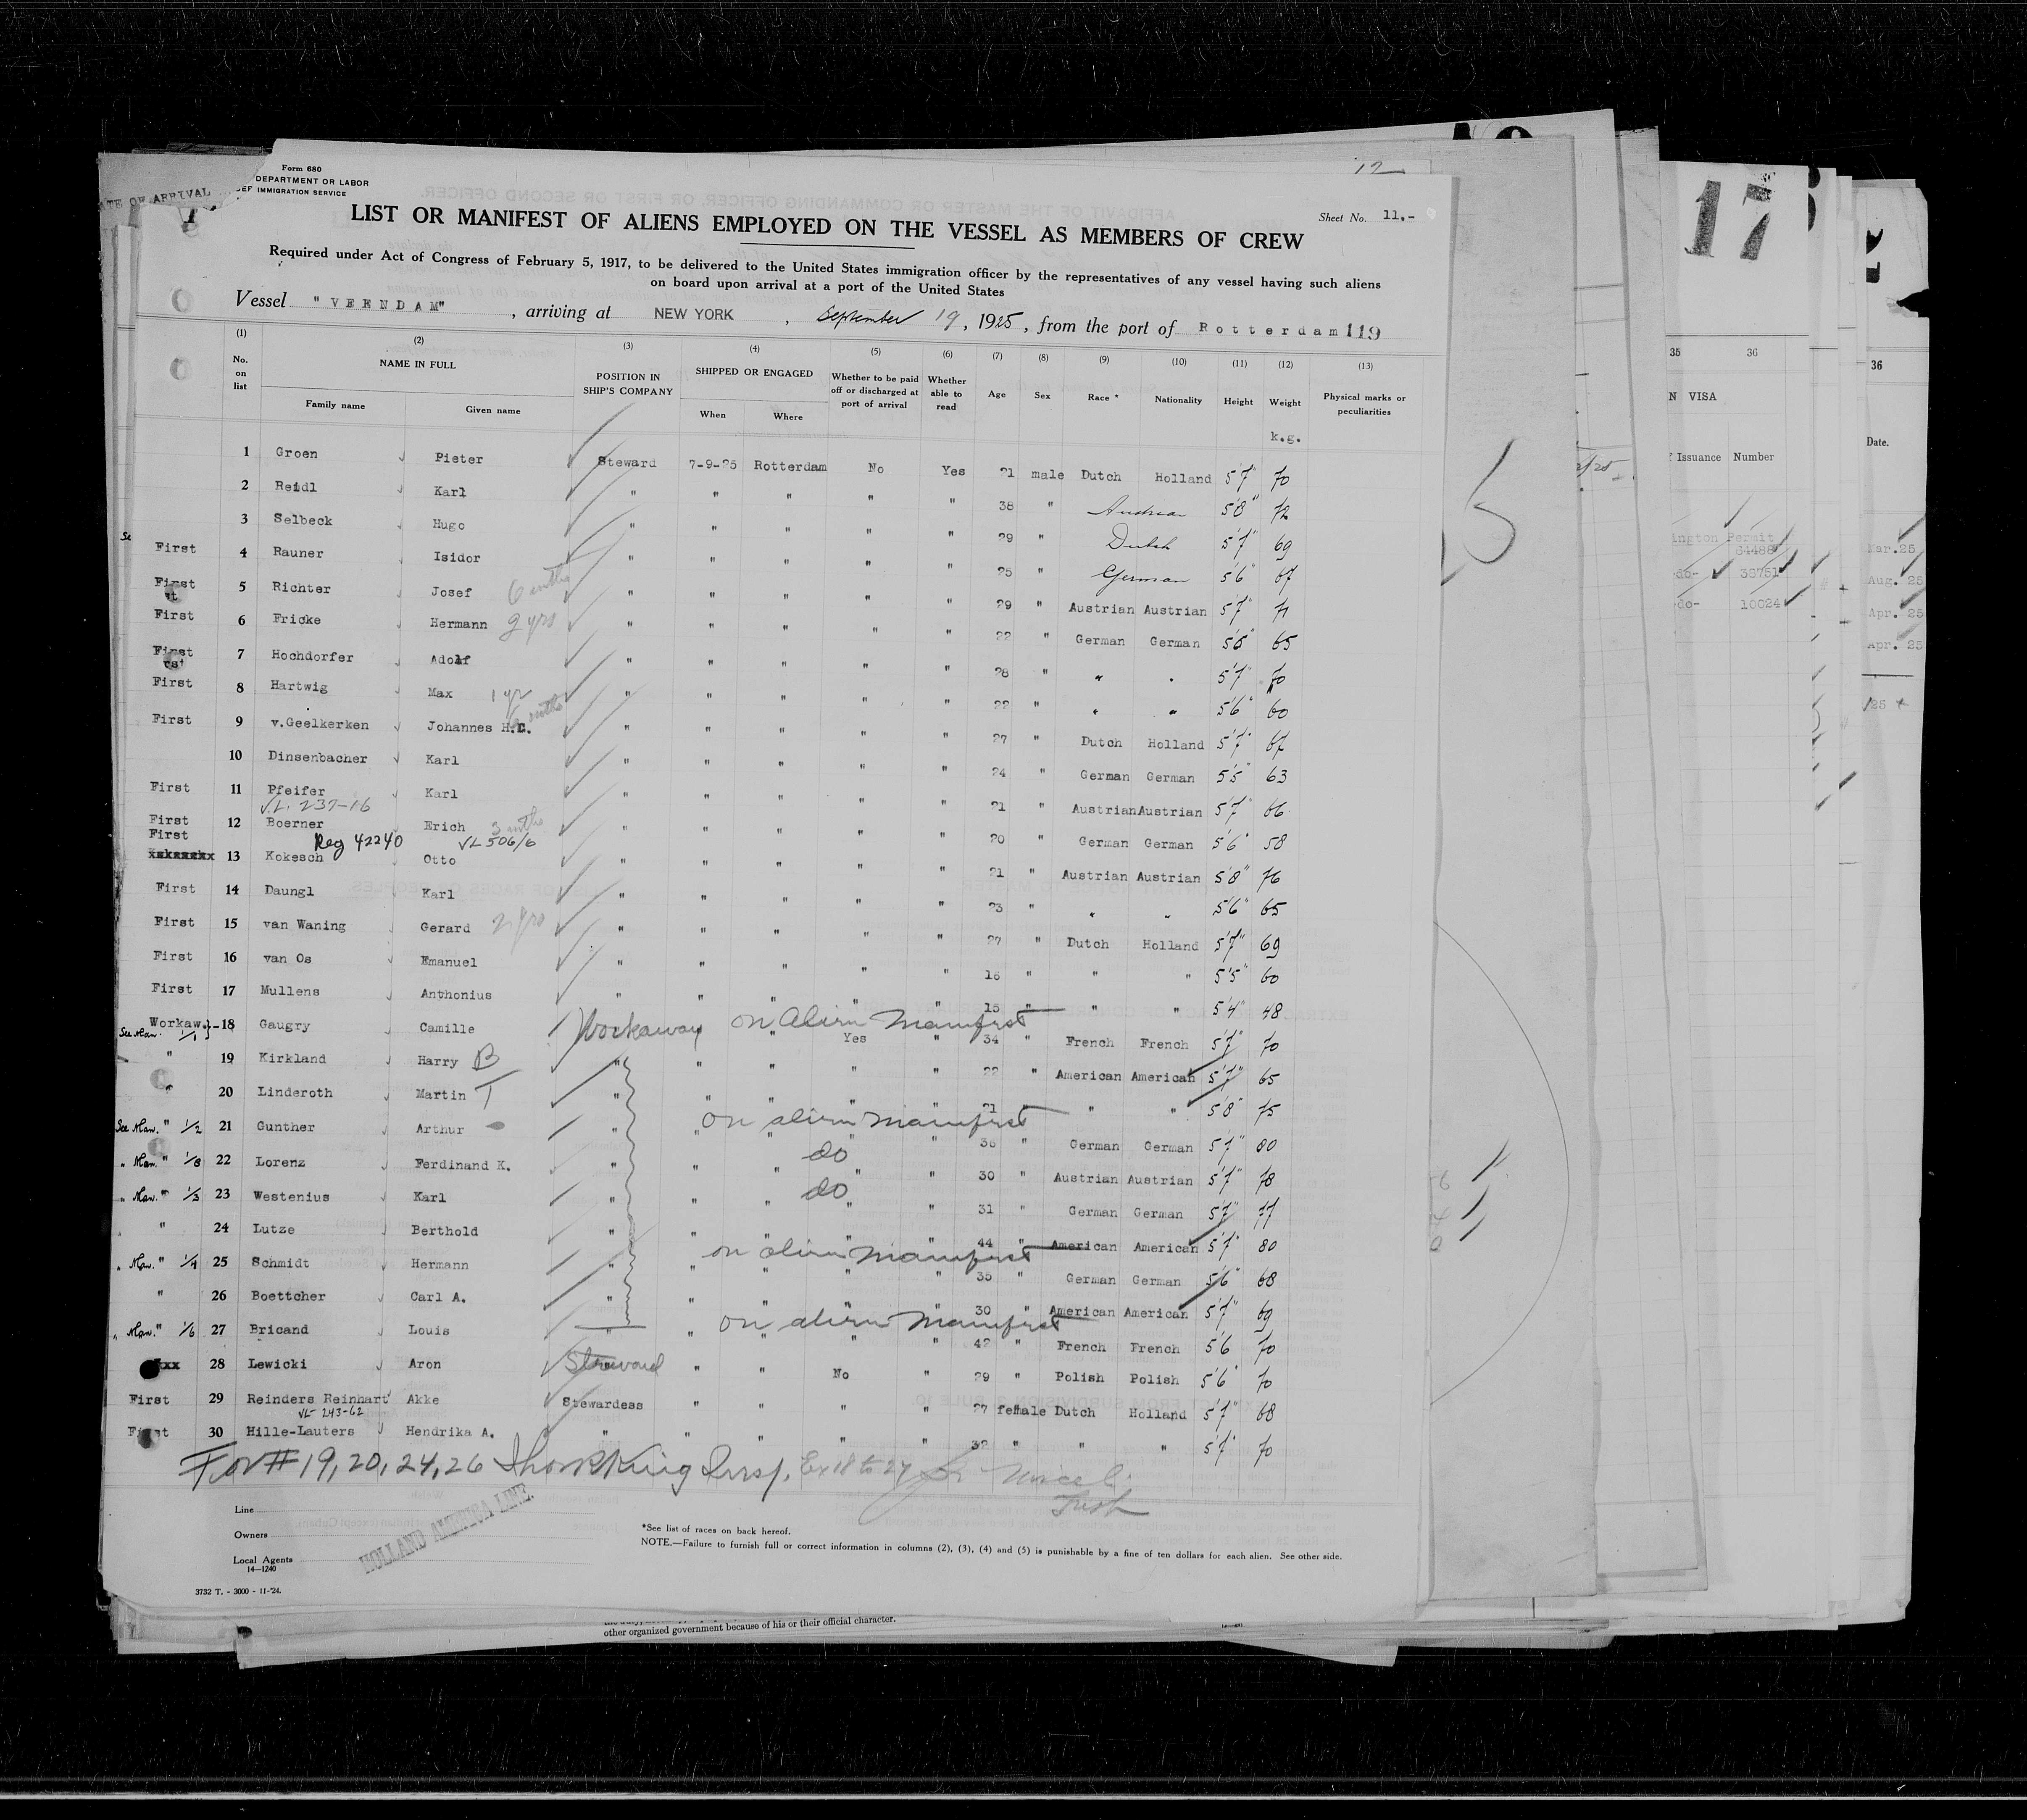 Form 680
DEPARTMENT OR LABOR
IMMIGRATION SERVICE
ATE OF ARRIVAL
12
Sheet No. 11.-
LIST OR MANIFEST OF ALIENS EMPLOYED ON THE VESSEL AS MEMBERS OF CREW
Required under Act of Congress of February 5, 1917, to be delivered to the United States immigration officer by the representatives of any vessel having such aliens
on board upon arrival at a port of the United States
Vessel "VEENDAM", arriving at NEW YORK, September 19, 1925, from the port of Rotterdam 119
(1) (2) (3) (4) (5) (6) (7) (8) (9) (10) (11) (12) (13)
No. on list NAME IN FULL Family name Given name POSITION IN SHIP'S COMPANY SHIPPED OR ENGAGED When Where Whether to be paid off or discharged at port of arrival Whether able to read Age Sex Race * Nationality Height Weight Physical marks or peculiarities
k.g.
1 Groen Pieter Steward 7-9-25 Rotterdam No Yes 21 male Dutch Holland 5'7" 70
2 Reidl Karl " " " " " 38 " Austrian 5'8" 72
3 Selbeck Hugo " " " " " 29 " Dutch 5'7" 69
First 4 Rauner Isidor " " " " " 25 " German 5'6" 67
First 5 Richter Josef 6 mths " " " " " 29 " Austrian Austrian 5'7" 71
First 6 Fricke Hermann 2 yrs " " " " " 22 " German German 5'6" 65
First 7 Hochdorfer Adolf " " " " " 28 " " " 5'7" 70
First 8 Hartwig Max 1 yr " " " " " 22 " " " 5'6" 60
First 9 v.Geelkerken Johannes H.C. mths " " " " " 27 " Dutch Holland 5'7" 67
10 Dinsenbacher Karl " " " " " 24 " German German 5'5" 63
First 11 Pfeifer Karl " " " " " 21 " Austrian Austrian 5'7" 66
V.L. 237-16
First 12 Boerner Erich 3 mths " " " " " 20 " German German 5'6" 58
First Reg 42240 VL 506/6
13 Kokesch Otto " " " " " 21 " Austrian Austrian 5'8" 76
First 14 Daungl Karl " " " " " 23 " " " 5'6" 65
First 15 van Waning Gerard 2 yrs " " " " " 27 " Dutch Holland 5'7" 69
First 16 van Os Emanuel " " " " " 16 " " " 5'5" 60
First 17 Mullens Anthonius " " " " " 15 " " " 5'4" 48
Workaw. 18 Gaugry Camille Workaway on Alien Manifest " Yes " 34 " French French 5'7" 70
See Man. 1/1
" 19 Kirkland Harry B " " " " " 22 " American American 5'7" 65
" 20 Linderoth Martin T " " " " " 21 " " " 5'8" 75
See Man. " 1/2 21 Gunther Arthur " on alien manifest " 36 " German German 5'7" 80
" Man. " 1/8 22 Lorenz Ferdinand K. " " " do " " 30 " Austrian Austrian 5'7" 78
" Man. " 1/5 23 Westenius Karl " " " do " " 31 " German German 5'7" 77
" 24 Lutze Berthold " " " " " 44 " American American 5'7" 80
" Man. " 1/4 25 Schmidt Hermann " on alien manifest " 35 " German German 5'6" 68
" 26 Boettcher Carl A. " " " " " 30 " American American 5'7" 69
" Man. " 1/6 27 Bricand Louis " on alien manifest " 42 " French French 5'6 70
28 Lewicki Aron Steward " " No " 29 " Polish Polish 5'6" 70
First 29 Reinders Reinhart Akke Stewardess " " " " 27 female Dutch Holland 5'7" 68
VL- 243-62
First 30 Hille-Lauters Hendrika A. " " " " " 32 " " " 5'7" 70
For # 19, 20, 24, 26 Insp. Ex 18 to 27
Line
Owners
Local Agents
14—1240
HOLLAND AMERICA LINE.
*See list of races on back hereof.
NOTE.—Failure to furnish full or correct information in columns (2), (3), (4) and (5) is punishable by a fine of ten dollars for each alien. See other side.
3732 T. - 3000 - 11-'24.
other organized government because of his or their official character.
17
35 36
N VISA
Issuance Number
ington Permit
64488
-do- 36751
-do- 10024
36
Date.
Mar.25
Aug. 25
Apr. 25
Apr. 25